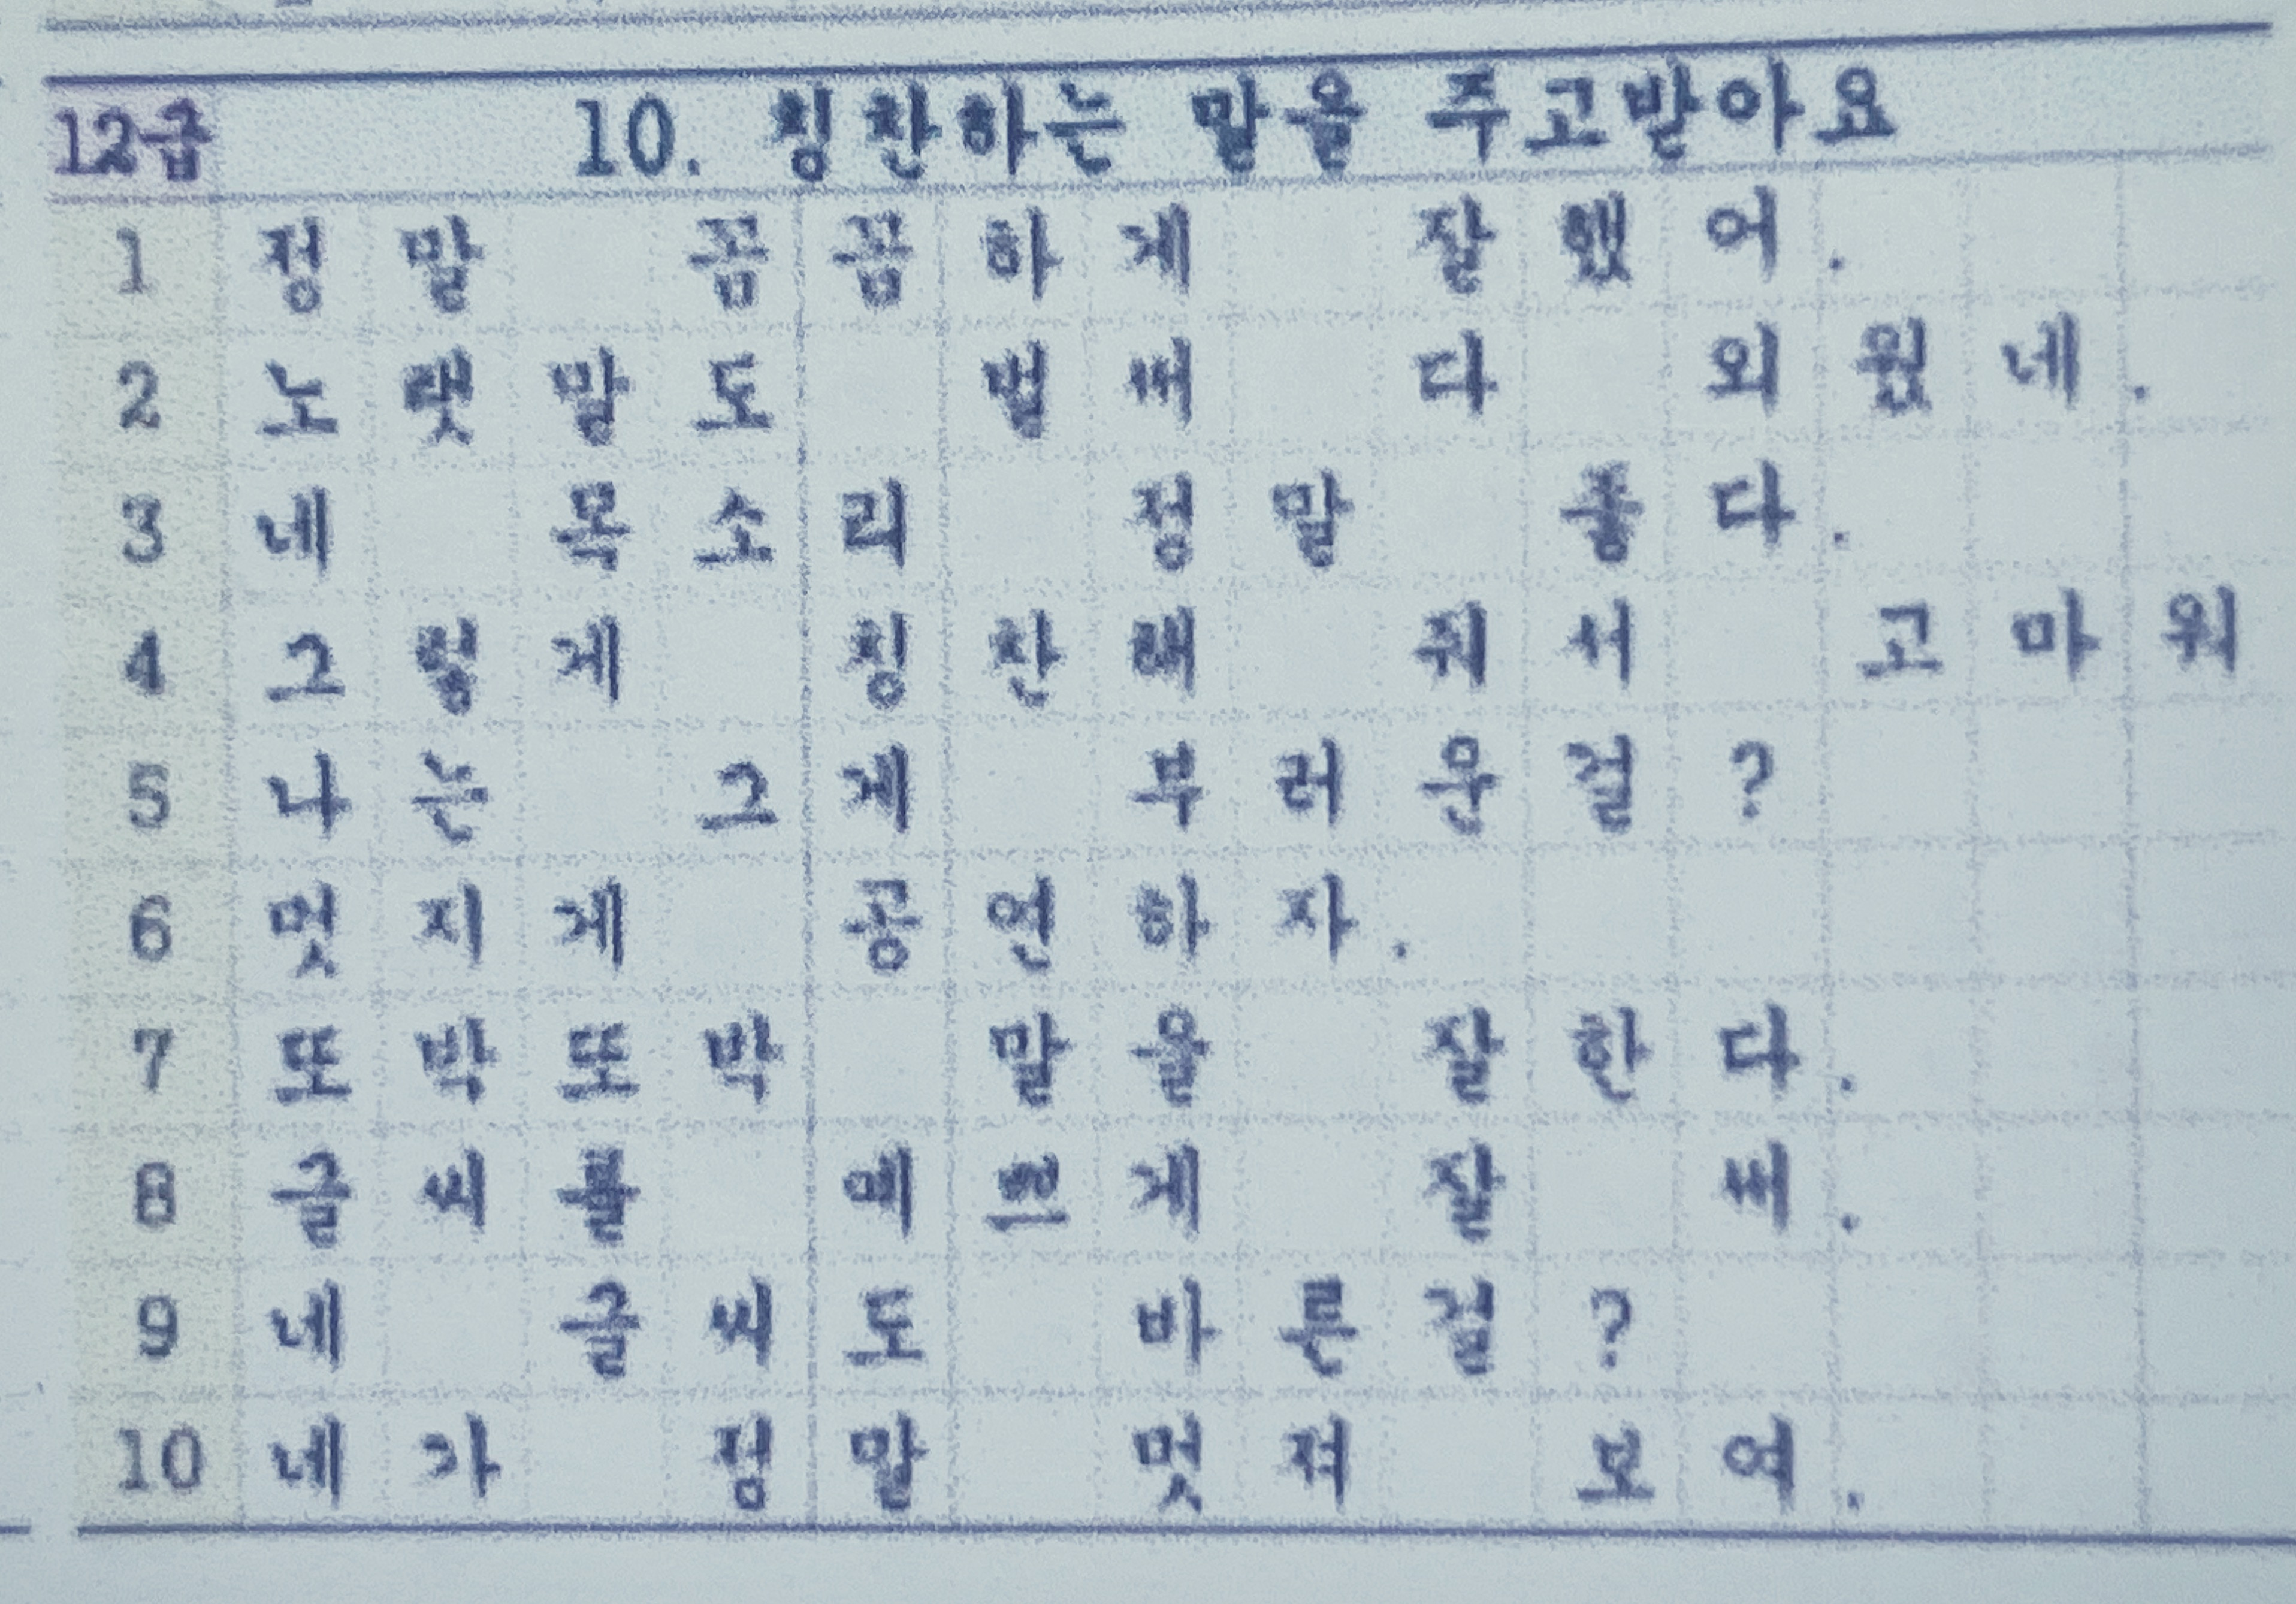 12급 10. 칭찬하는 말을 주고받아요
1 정말 꼼꼼하게 잘했어.
2 노랫말도 벌써 다 외웠네.
3 네 목소리 정말 좋다.
4 그렇게 칭찬해 줘서 고마워
5 나는 그게 부러운걸?
6 멋지게 공연하자.
7 또박또박 말을 잘한다.
8 글씨를 예쁘게 잘 써.
9 네 글씨도 바른걸?
10 네가 정말 멋져 보여.